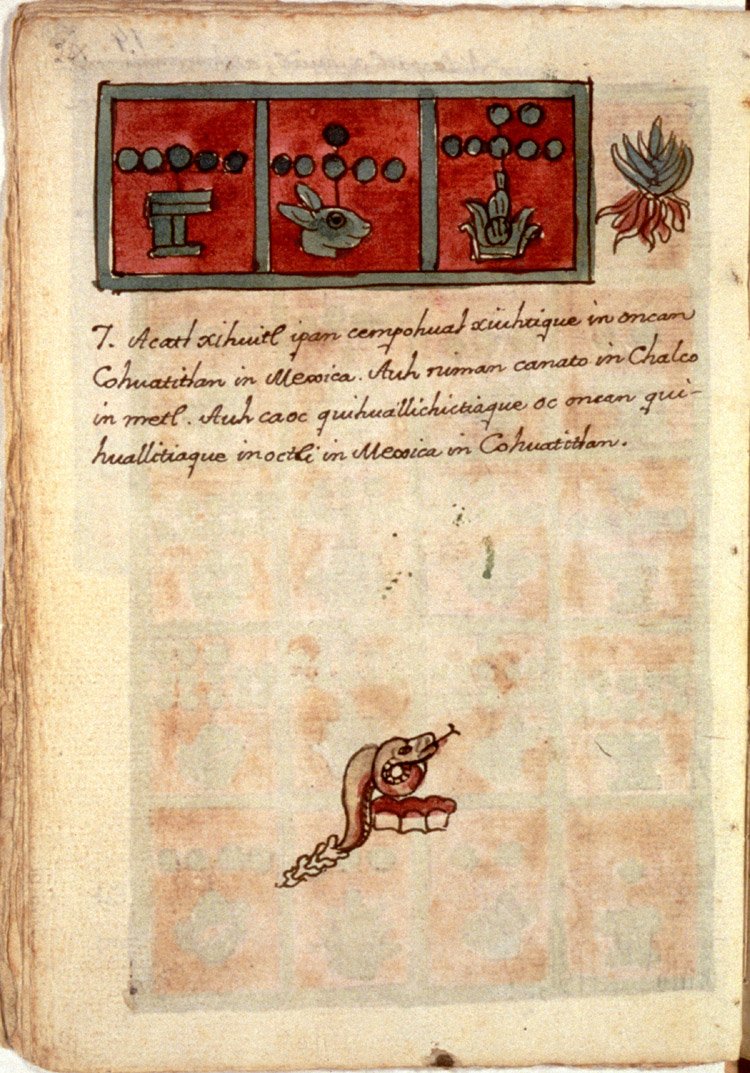 7. Acatl xihuitl ipan cempohual xiuhtique in oncan
Cohuatitlan in Mexica. Auh niman canato in Chalco
in metl. Auh ca oc quihuallichictiaque oc oncan qui-
huallitiaque in octli in Mexica in Cohuatitlan.